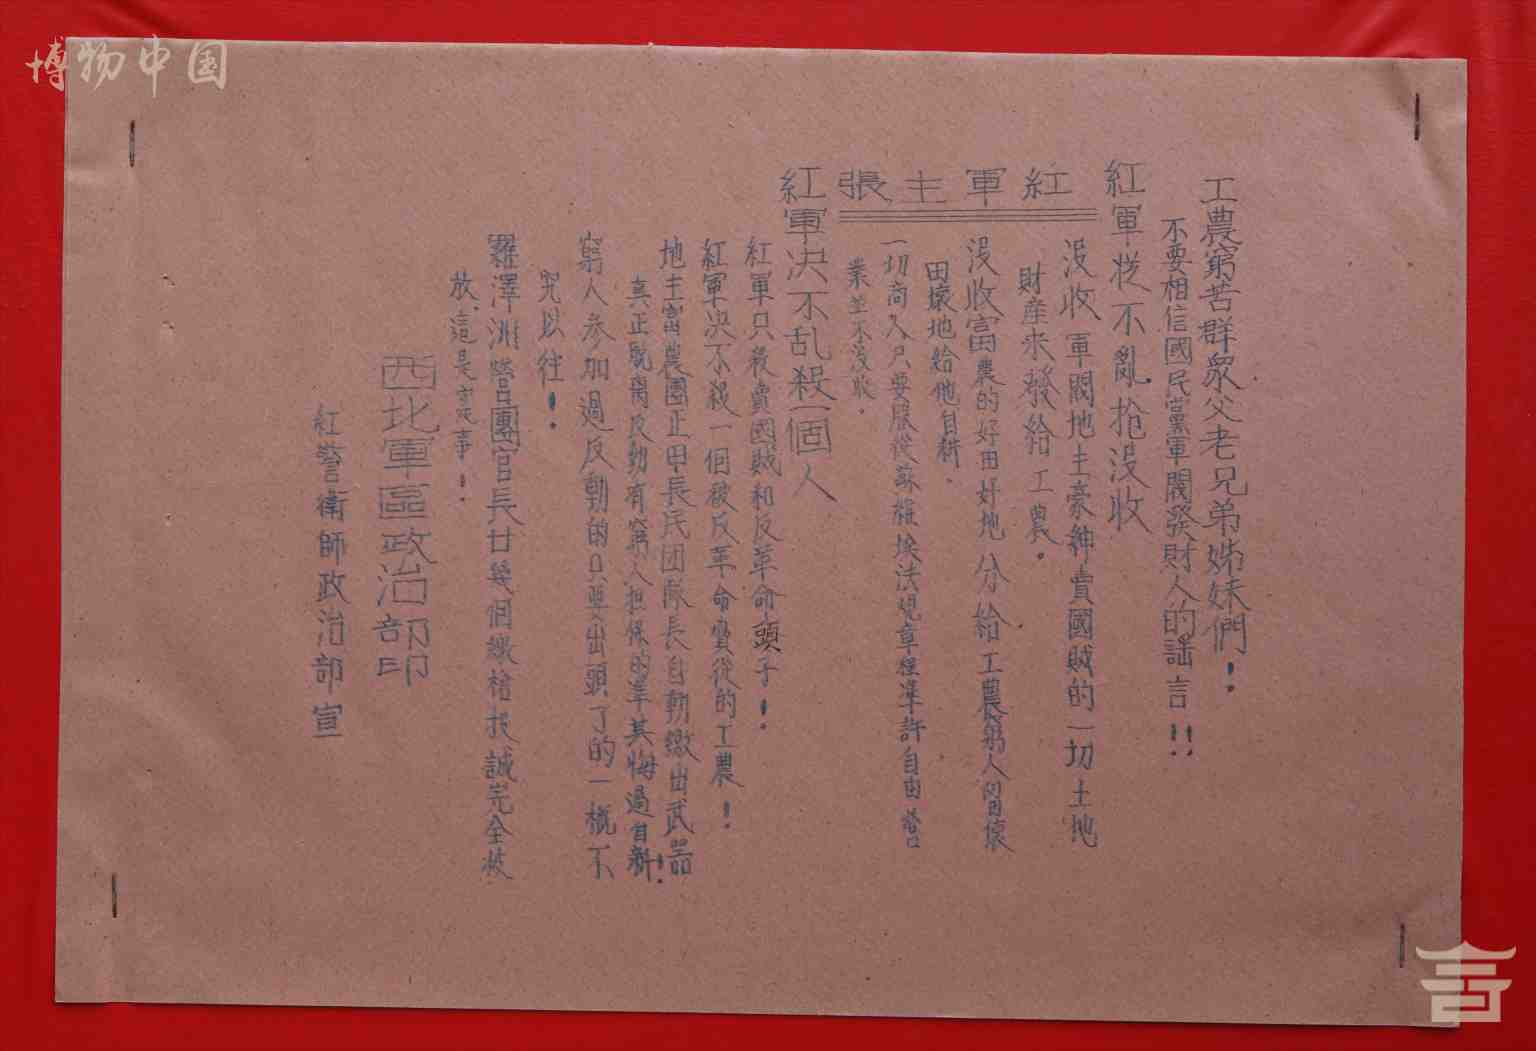 博物中国
工農窮苦群眾父老兄弟姊妹們！
不要相信國民黨軍閥發財人的謡言！！
紅軍從不亂抢没收
紅軍主張
没收軍閥地主豪紳賣國賊的一切土地
財産來發給工農。
没收富農的好田好地分給工農窮人留壞
田壞地給他自耕。
一切商人只要服從蘇維埃法規章程準許自由營
業並不没收。
紅軍决不乱殺一個人
紅軍只殺賣國賊和反革命頭子！
紅軍决不殺一個被反革命脅從的工農！
地主富農團正甲長民团隊長自動繳出武器
真正脱离反動有窮人担保的準其悔過自新！
窮人参加過反動的只要出頭了的一概不
究以往！
羅澤洲營團官長廿幾個繳槍投誠完全被
放，這是事！
西北軍區政治部印
紅警衛師政治部宣